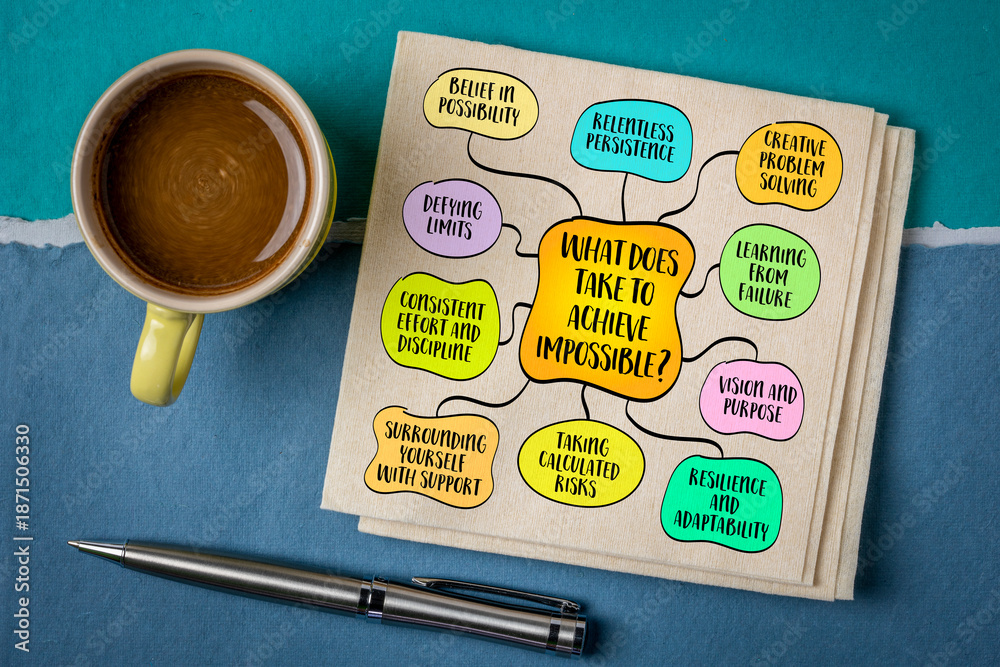 BELIEF IN
POSSIBILITY
RELENTLESS
PERSISTENCE
CREATIVE
PROBLEM
SOLVING
DEFYING
LIMITS
WHAT DOES
TAKE TO
ACHIEVE
IMPOSSIBLE?
LEARNING
FROM
FAILURE
CONSISTENT
EFFORT AND
DISCIPLINE
VISION AND
PURPOSE
SURROUNDING
YOURSELF
WITH SUPPORT
TAKING
CALCULATED
RISKS
RESILIENCE
AND
ADAPTABILITY
Adobe Stock | #1871506330